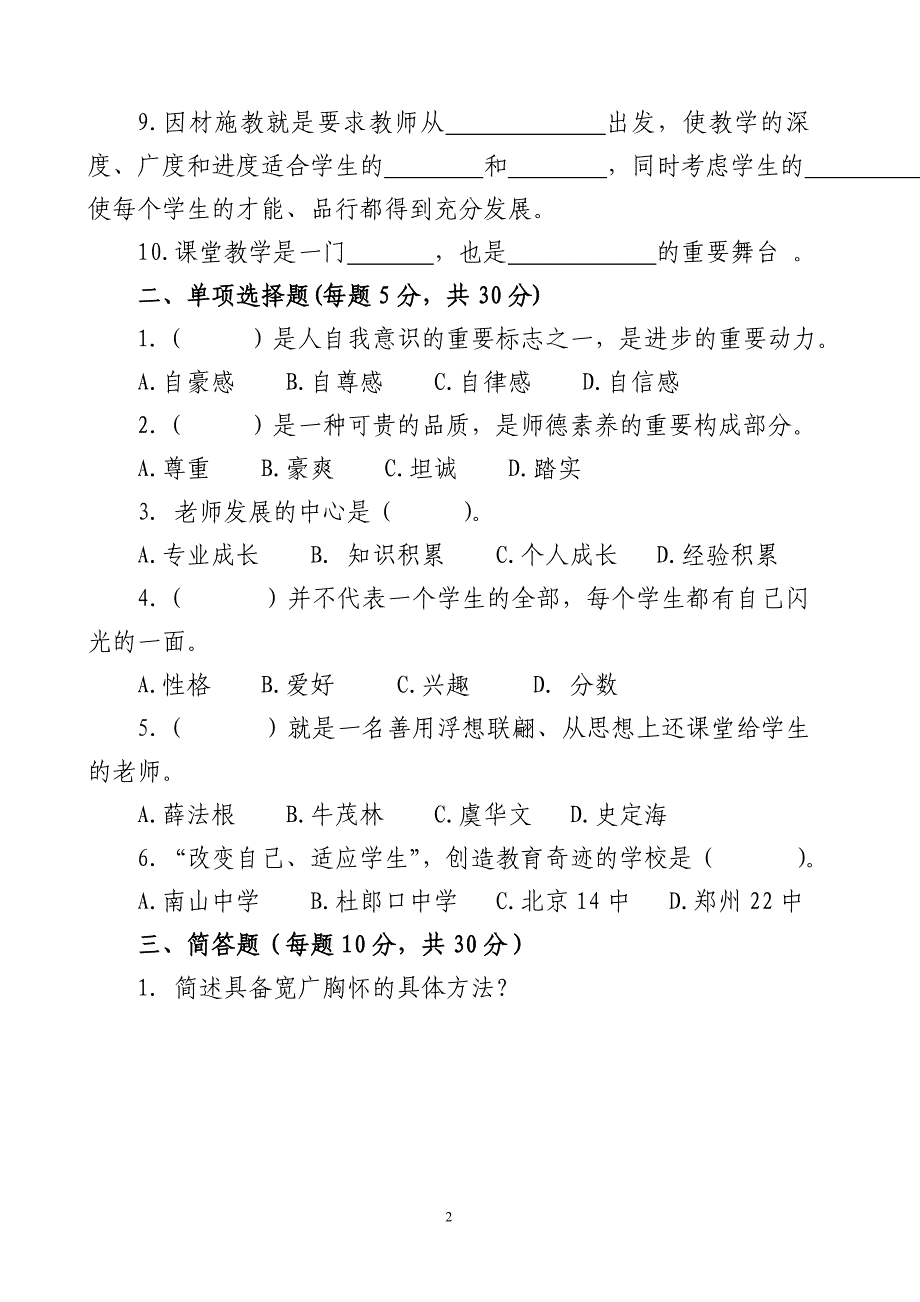 9.因材施教就是要求教师从_____________出发，使教学的深
度、广度和进度适合学生的________和________，同时考虑学生的__________
使每个学生的才能、品行都得到充分发展。
10.课堂教学是一门_______，也是____________的重要舞台 。
二、单项选择题(每题5分，共30分)
1.（　　　）是人自我意识的重要标志之一，是进步的重要动力。
A.自豪感　B.自尊感　C.自律感　D.自信感
2.（　　　）是一种可贵的品质，是师德素养的重要构成部分。
A.尊重　B.豪爽　C.坦诚　D.踏实
3. 老师发展的中心是（　　　）。
A.专业成长　B. 知识积累　C.个人成长　D.经验积累
4.（　　　）并不代表一个学生的全部，每个学生都有自己闪
光的一面。
A.性格　B.爱好　C.兴趣　D. 分数
5.（　　　）就是一名善用浮想联翩、从思想上还课堂给学生
的老师。
A.薛法根　B.牛茂林　C.虞华文　D.史定海
6.“改变自己、适应学生”，创造教育奇迹的学校是（　　　）。
A.南山中学　B.杜郎口中学　C.北京14中　D.郑州22中
三、简答题（每题10分，共30分）
1. 简述具备宽广胸怀的具体方法？
2